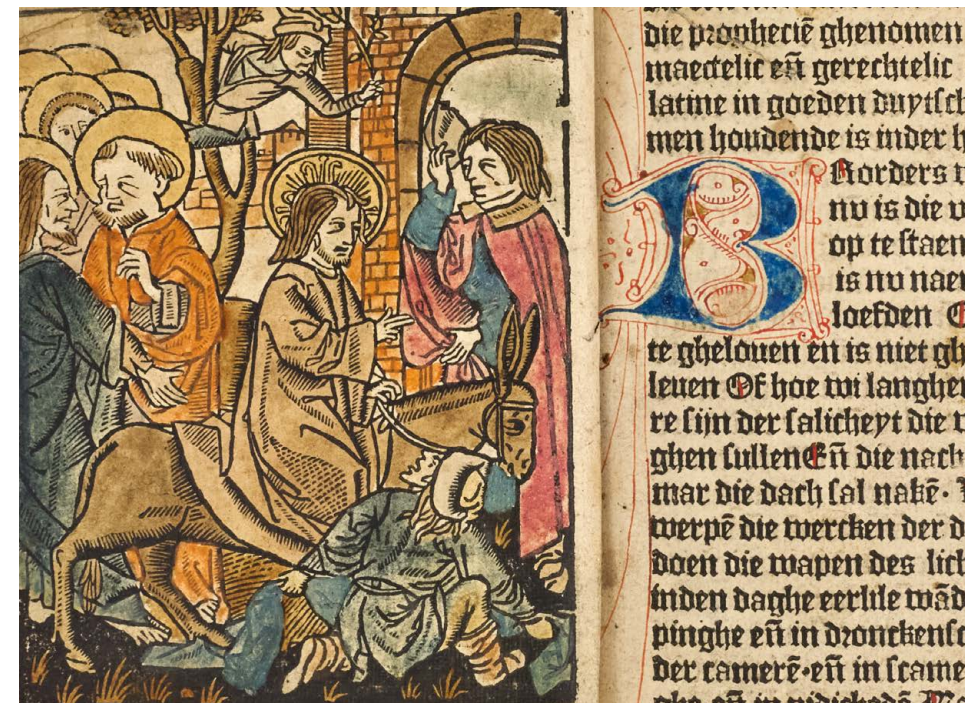 die propheciē ghenomen
maectelic eñ gerechtelic
latine in goeden duytsch
men houdende is inder h
BRorders
nv is die
op te staen
is nv nae
loefden
te ghelouen en is niet gh
leuen Of hoe wi langhe
re sijn der salicheyt die
ghen sullen Eñ die nach
mar die dach sal nakē.
werpē die wercken der d
doen die wapen des lich
inden daghe eerlile wād
pinghe eñ in dronckensc
der camerē.eñ in scame